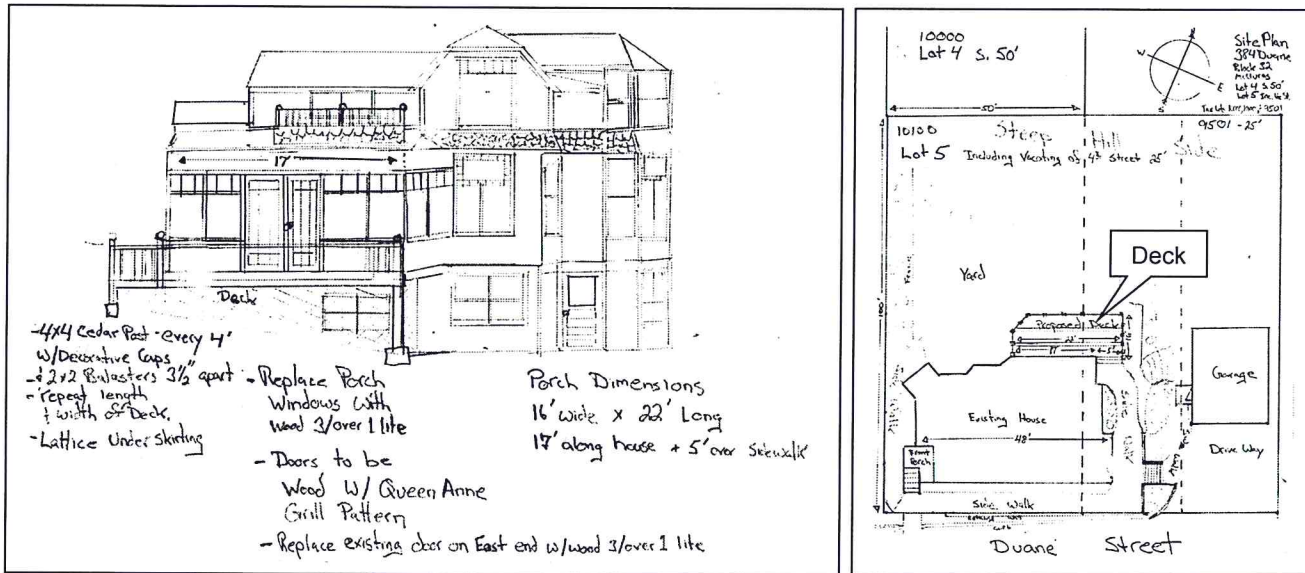 17'
Deck
-4x4 Cedar Post - every 4'
w/Decorative Caps
- 2x2 Balasters 3½" apart
- repeat length
& width of Deck.
- Lattice Under Skirting
- Replace Porch
Windows with
Wood 3/over 1 lite
- Doors to be
Wood W/ Queen Anne
Grill Pattern
- Replace existing door on East end w/wood 3/over 1 lite
Porch Dimensions
16' wide x 22' Long
17' along house + 5' over Sidewalk
10000
Lot 4 S. 50'
N
W
E
S
Site Plan
384 Duane
Block 32
Lot 4 S 50'
50'
9501 - 25'
10100
Steep Hill Side
Lot 5 Including Vacating of 4th Street 25'
Fence
Yard
100'
Deck
Proposed Deck
22'
17'
16'
Garage
Existing House
48'
Front
Porch
Drive Way
Side Walk
Duane Street